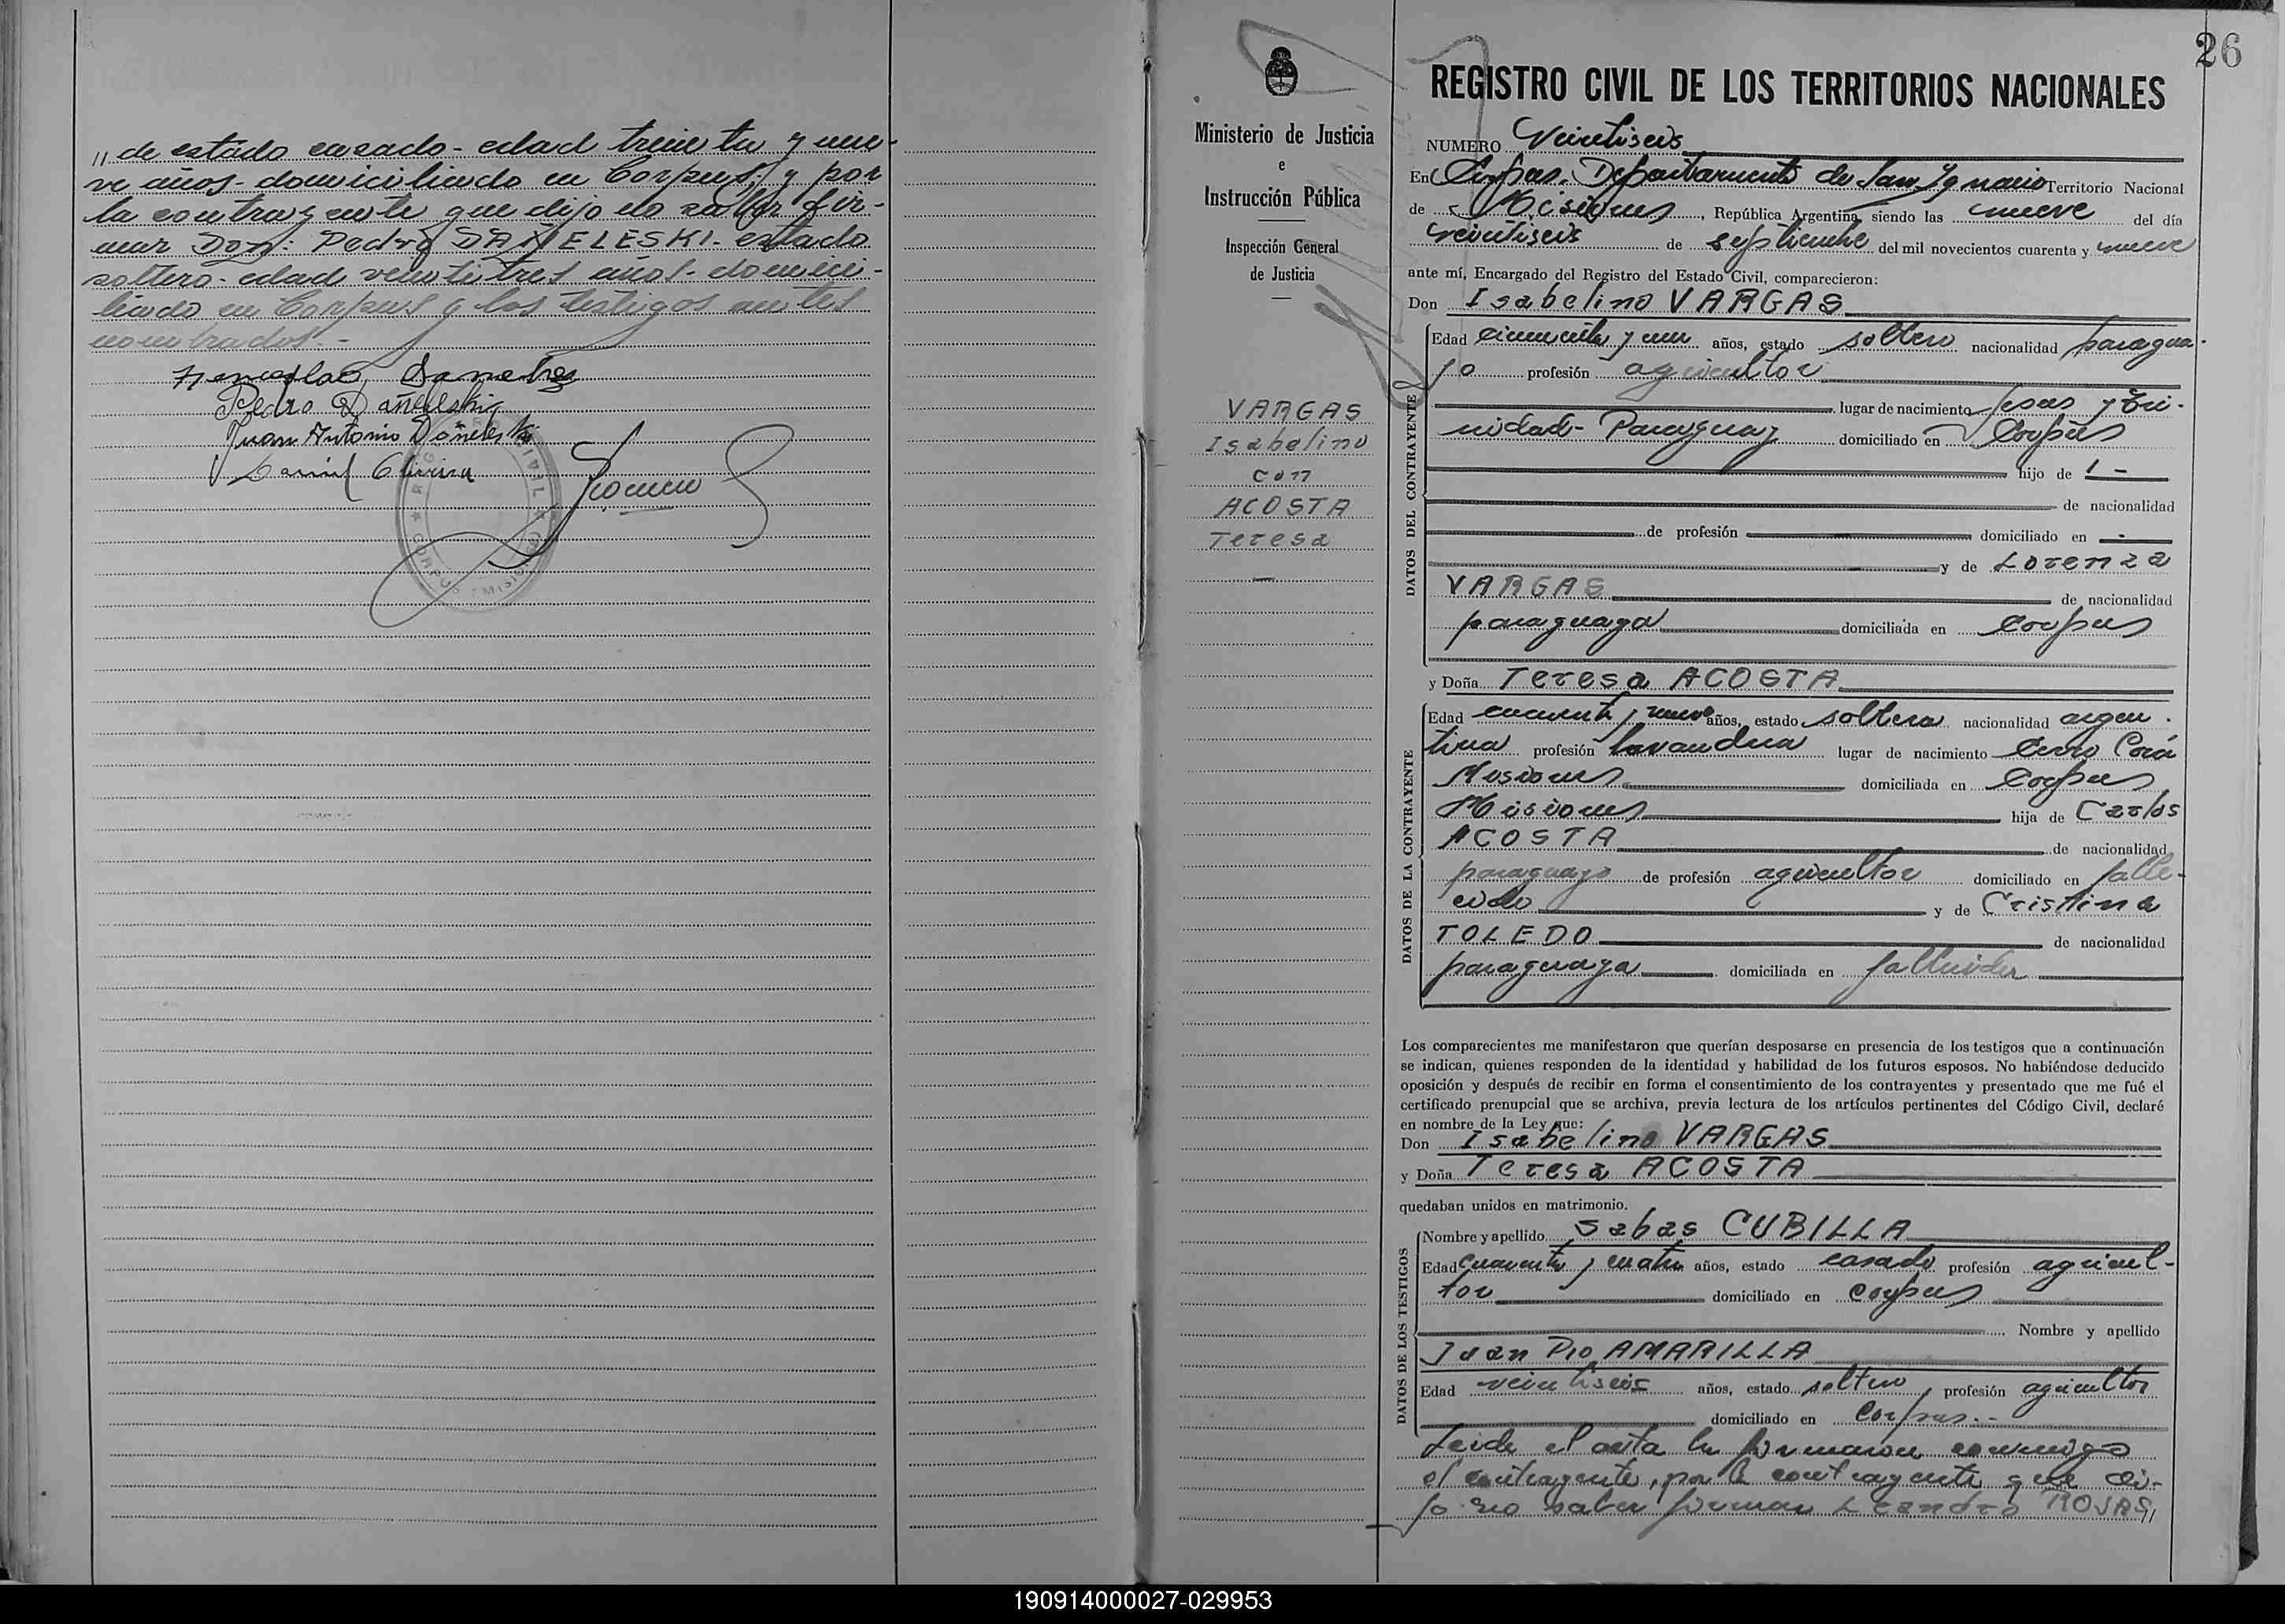 " de estado casado - edad treinta y nue-
ve años - domiciliado en Corpus; y por
la contrayente que dijo no saber fir-
mar Don: Pedro DAÑELESKI - estado
soltero - edad veintitres años - domici-
liado en Corpus y los testigos antes
nombrados. -
Pedro Dañeleski
Juan Antonio Dañeleski
26
Ministerio de Justicia
e
Instrucción Pública
Inspección General
de Justicia
VARGAS
Isabelino
con
ACOSTA
Teresa
REGISTRO CIVIL DE LOS TERRITORIOS NACIONALES
NUMERO Veintiseis
En Corpus. Departamento de San Ignacio Territorio Nacional
de Misiones, República Argentina, siendo las nueve del día
veintiseis de septiembre del mil novecientos cuarenta y nueve
ante mí, Encargado del Registro del Estado Civil, comparecieron:
Don Isabelino VARGAS
DATOS DEL CONTRAYENTE
Edad cincuenta y un años, estado soltero nacionalidad paragua-
yo profesión agricultor
lugar de nacimiento Jesus y Tri-
nidad - Paraguay domiciliado en Corpus
hijo de
de nacionalidad
de profesión domiciliado en
y de Lorenza
VARGAS de nacionalidad
paraguaya domiciliada en Corpus
y Doña Teresa ACOSTA
DATOS DE LA CONTRAYENTE
Edad cuarenta y nueve años, estado soltera nacionalidad argen-
tina profesión lavandera lugar de nacimiento Cerro Corá
Misiones domiciliada en Corpus
Misiones hija de Carlos
ACOSTA de nacionalidad
paraguayo de profesión agricultor domiciliado en falle-
cido y de Cristina
TOLEDO de nacionalidad
paraguaya domiciliada en fallecida
Los comparecientes me manifestaron que querían desposarse en presencia de los testigos que a continuación
se indican, quienes responden de la identidad y habilidad de los futuros esposos. No habiéndose deducido
oposición y después de recibir en forma el consentimiento de los contrayentes y presentado que me fué el
certificado prenupcial que se archiva, previa lectura de los artículos pertinentes del Código Civil, declaré
en nombre de la Ley que:
Don Isabelino VARGAS
y Doña Teresa ACOSTA
quedaban unidos en matrimonio.
DATOS DE LOS TESTIGOS
Nombre y apellido Sabas CUBILLA
Edad cuarenta y cuatro años, estado casado profesión agricul-
tor domiciliado en Corpus
Nombre y apellido
Juan Pio AMARILLA
Edad veintiseis años, estado soltero, profesión agricultor
domiciliado en Corpus. -
Leida el acta la firmaron conmigo
el contrayente, por la contrayente que di-
jo no saber firmar Leandro ROJAS "
190914000027-029953